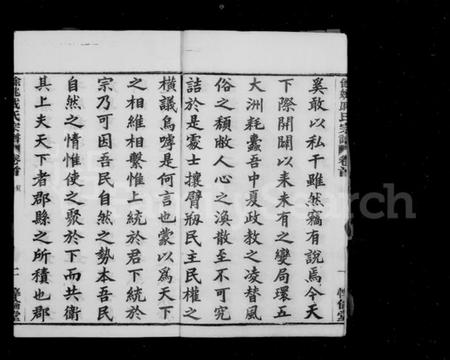 奚敢以私干雖然竊有說焉今天
下際開闢以來未有之變局環五
大洲耗蠹吾中夏政教之凌替風
俗之頹敝人心之渙散至不可究
詰於是豪士攘臂剏民主民權之
橫議烏嘑是何言也蒙以爲天下
之相維相繫惟上統於君下統於
宗乃可因吾民自然之勢本吾民
自然之情惟使之聚於下而共衛
其上夫天下者郡縣之所積也郡
餘姚戚氏宗譜
卷首